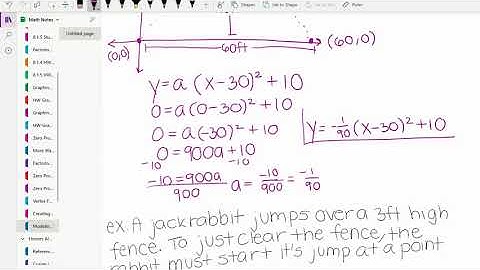 Math Notes
Untitled page
Shapes
Ink to Shape
8.1.5 Stud
Factorin
8.1.4 HW
8.1.5 WU
Graphin
HW Gra
Graphin
HW Gra
Zero Pro
More Ma
Factorin
Zero Pro
Zero Pro
Vertex Fo
Creating
Modelin
(0,0)
60ft
(60,0)
y = a (x-30)² + 10
0 = a(0-30)² + 10
0 = a(-30)² + 10
0 = 900a + 10
-10 -10
-10 = 900a
900
a = -10/900 = -1/90
y = -1/90 (x-30)² + 10
ex. A jackrabbit jumps over a 3ft high
fence. To just clear the fence, the
rabbit must start it's jump at a point